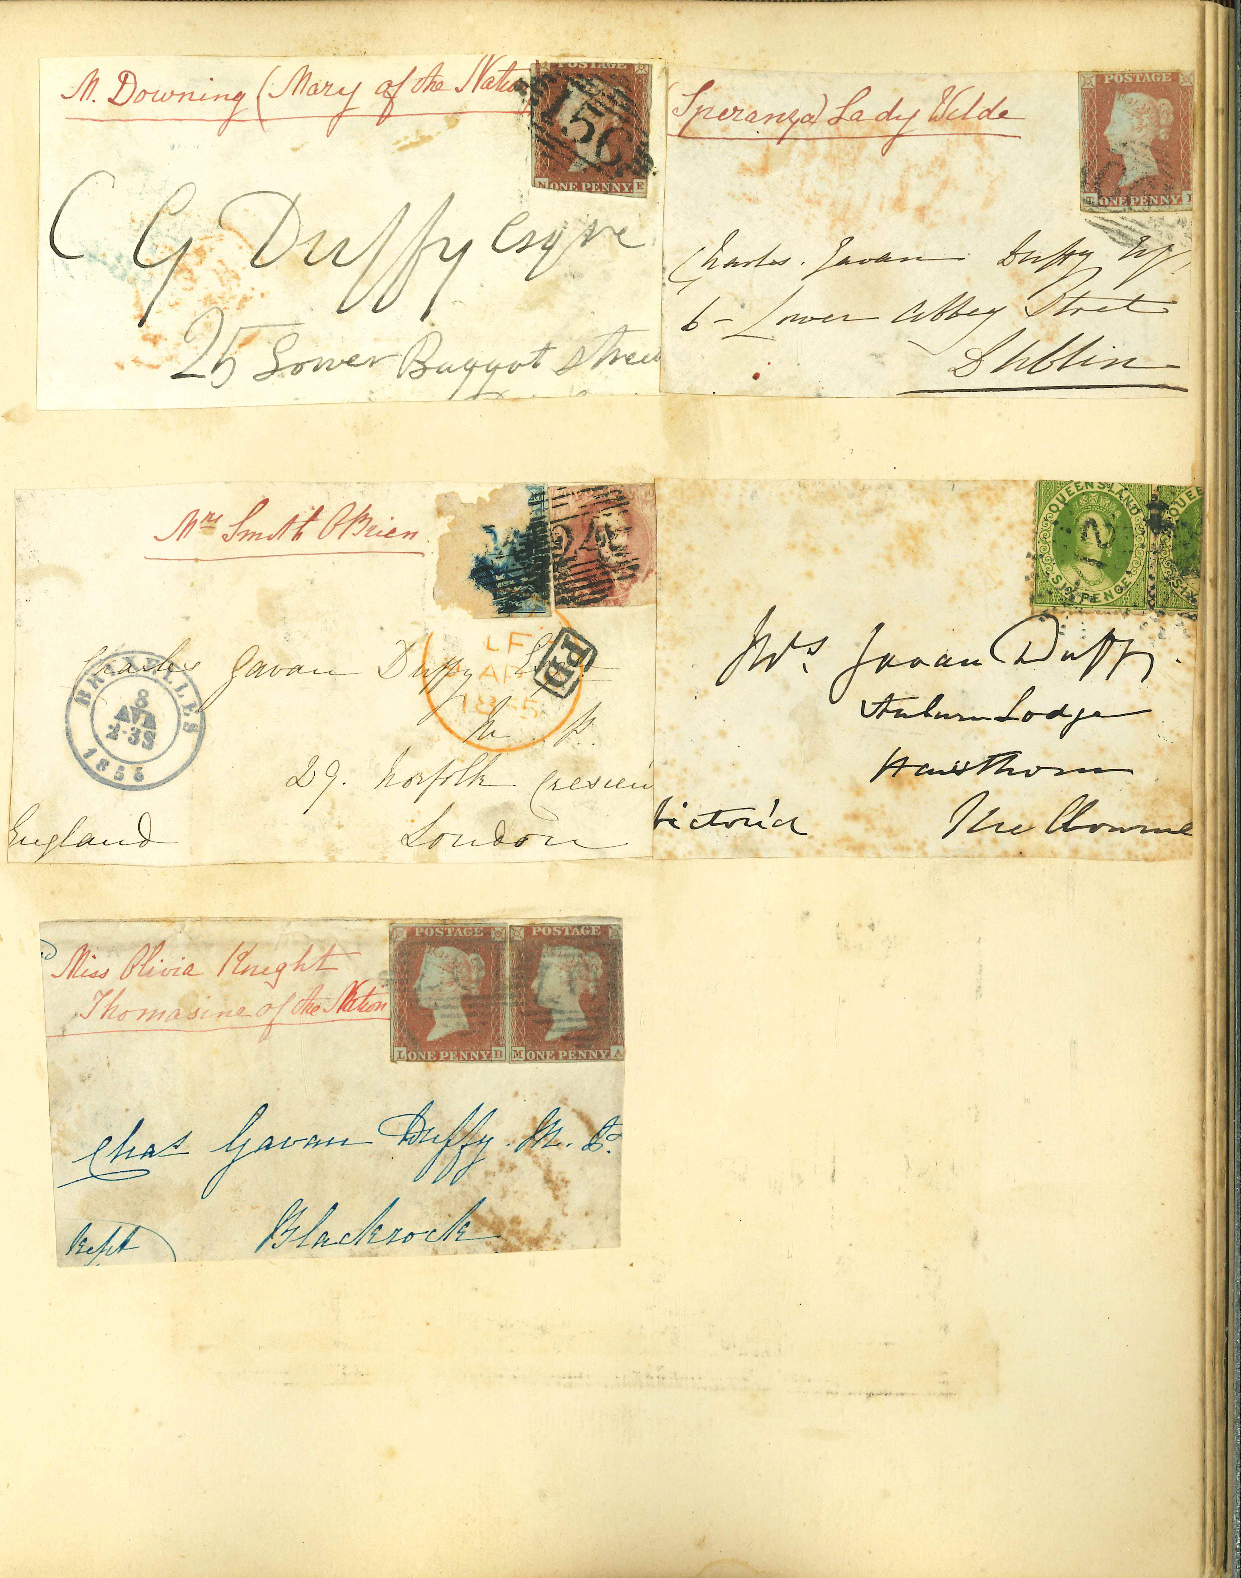 M. Downing (Mary of the Natio
POSTAGE
156
N ONE PENNY E
C G Duffy Esqre
25 Lower Baggot Street
(Speranza) Lady Wilde
POSTAGE
ONE PENNY
Charles. Gavan Duffy
6 - Lower Abbey Street
Dublin
Mrs Smith O'Brien
24
Charles Gavan Duffy
M. P.
29. Norfolk Crescen
London
England
BRUXELLES
8
AVR
2-3S
1856
LF
AP
185
PD
QUEENSLAND
SIX PENCE
QUEE
Mrs. Gavan Duffy.
Auburn Lodge
Hawthorn
Melbourne
Victoria
Miss Olivia Knight
Thomasine of the Nation
POSTAGE
L ONE PENNY
POSTAGE
M ONE PENNY A
Chas Gavan Duffy. M. P.
Blackrock